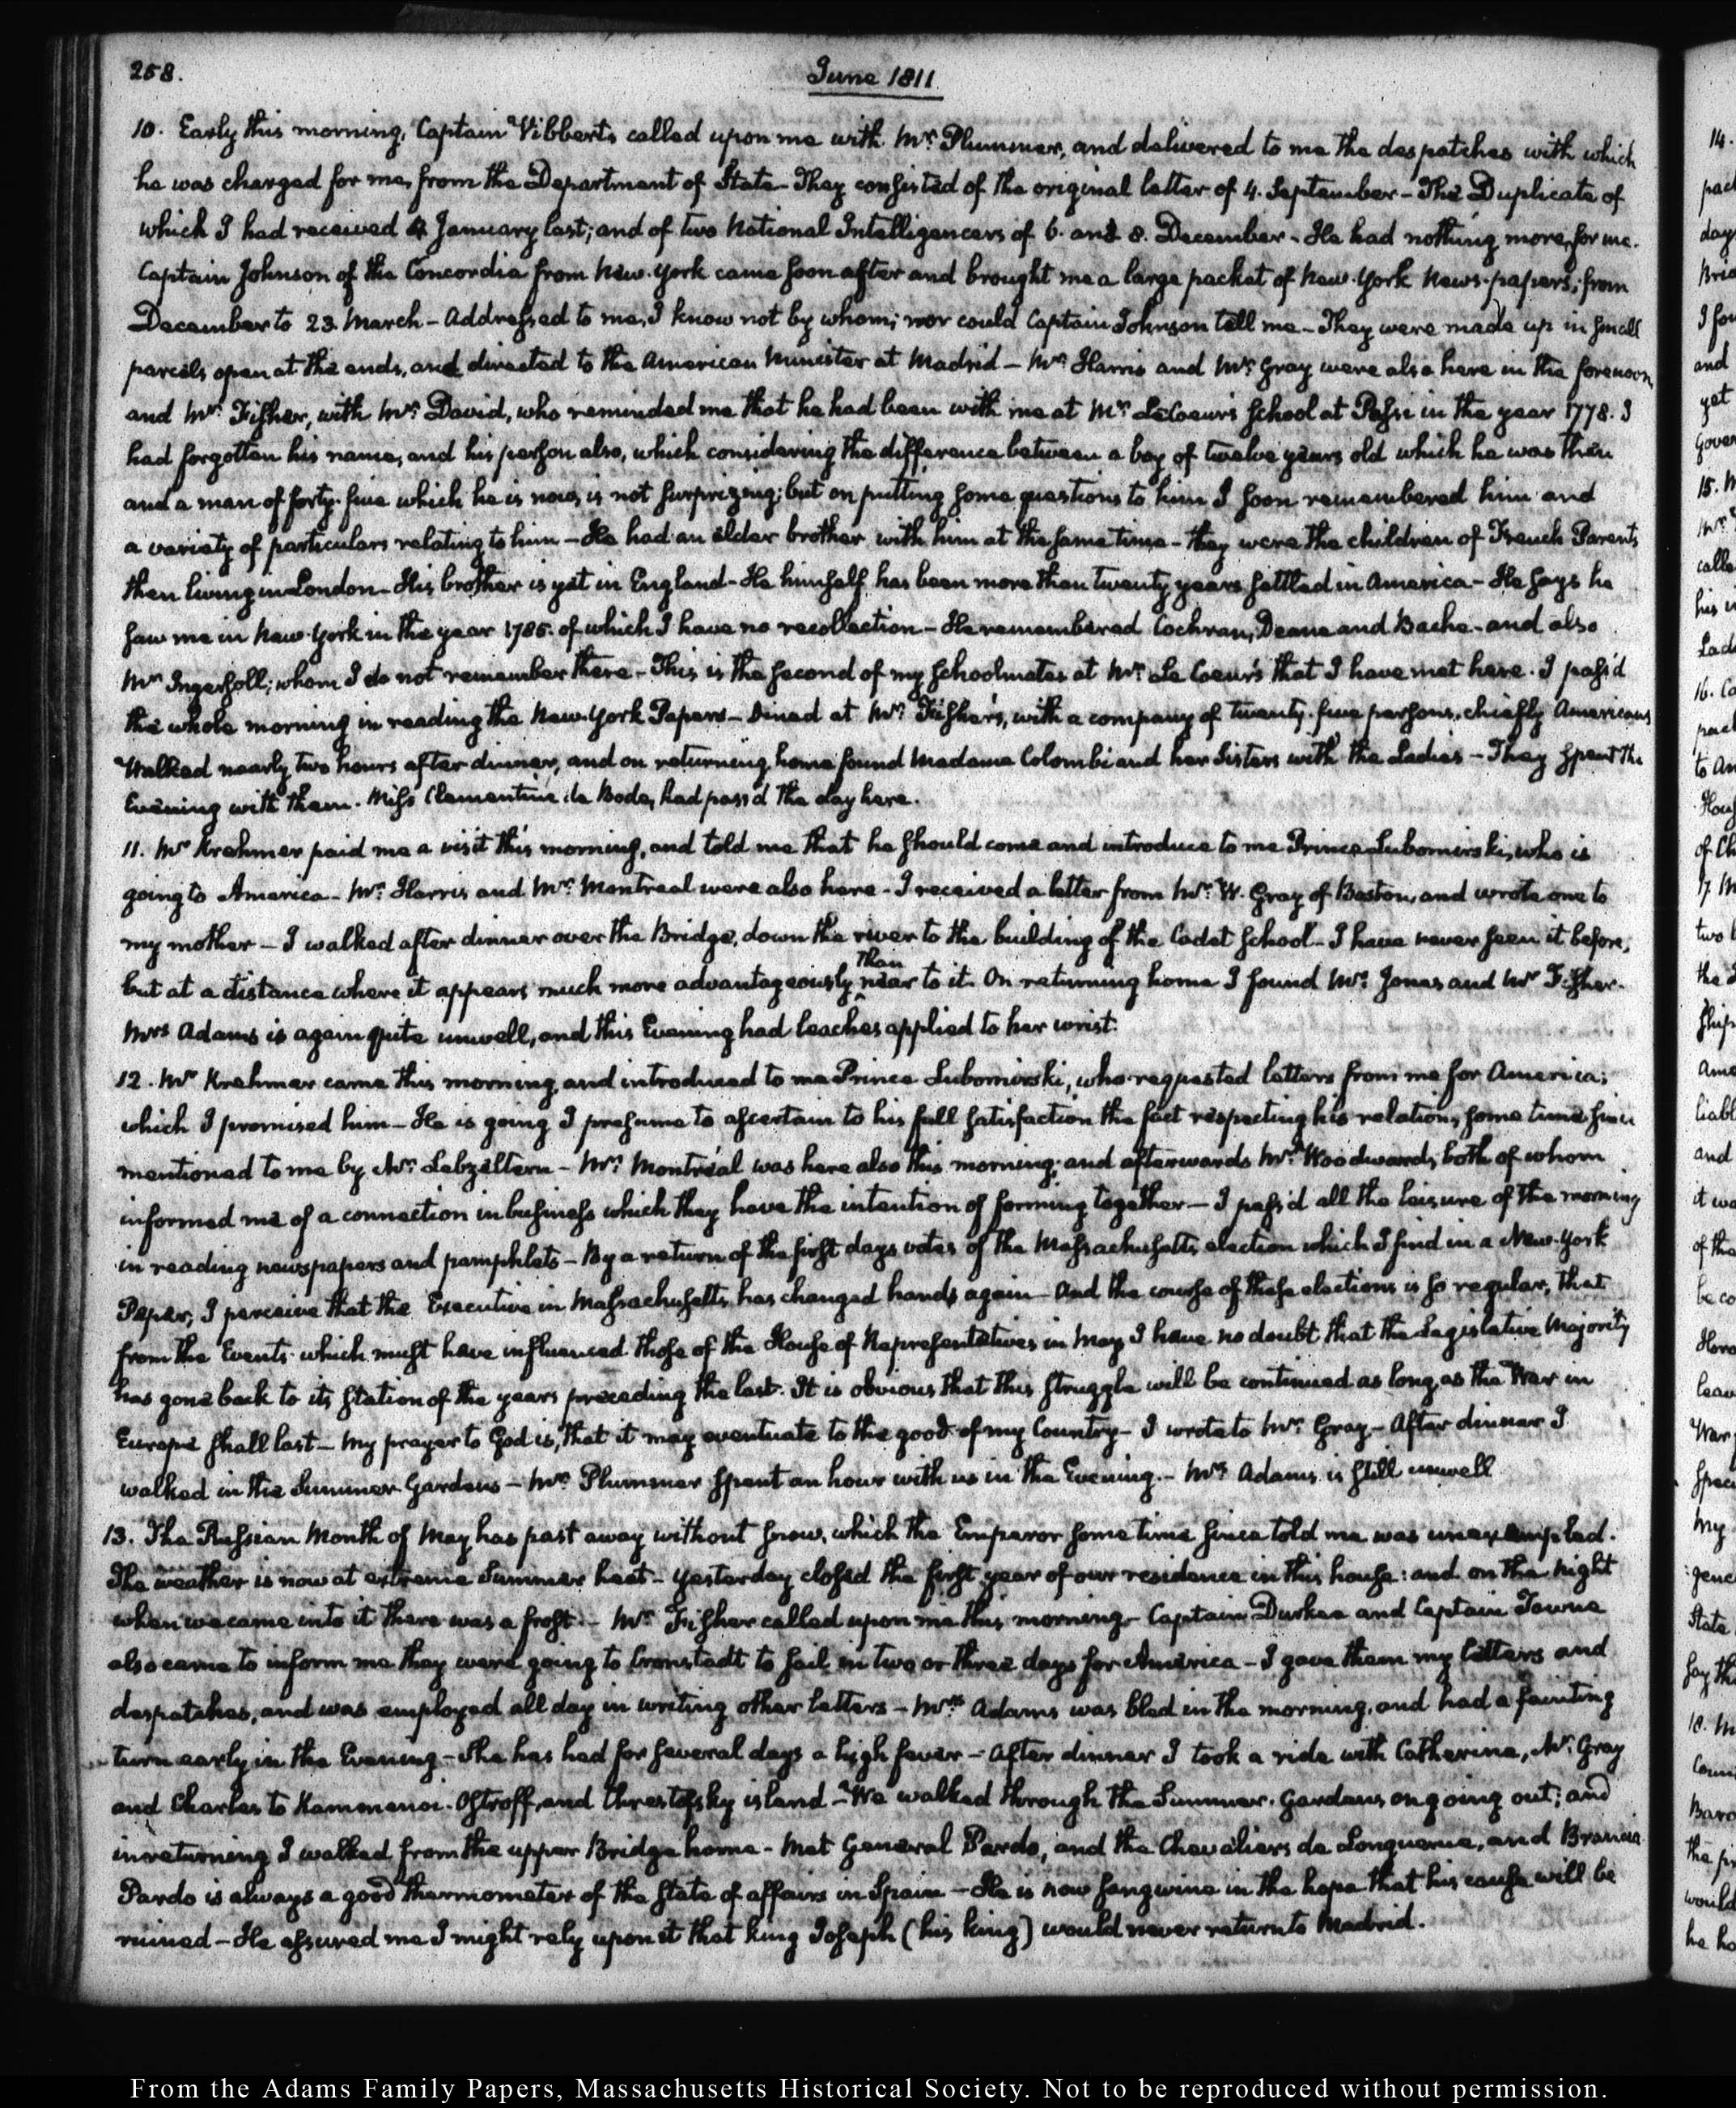 258.
June 1811
10. Early this morning, Captain Vibberts called upon me with Mr. Plummer, and delivered to me the despatches with which
he was charged for me, from the Department of State - They consisted of the original letter of 4. September - The Duplicate of
which I had received 4 January last; and of two National Intelligencers of 6. and 8. December - He had nothing more, for me.
Captain Johnson of the Concordia from New-York came soon after and brought me a large packet of New-York News-papers; from
December to 23 March - Addressed to me, I know not by whom; nor could Captain Johnson tell me - They were made up in small
parcels open at the ends, and directed to the American Minister at Madrid - Mr. Harris and Mr. Gray were also here in the forenoon,
and Mr. Fisher, with Mr. David, who reminded me that he had been with me at Mr. LeCoeur's school at Passi in the year 1778. I
had forgotten his name, and his person also, which considering the difference between a boy of twelve years old which he was then
and a man of forty-five which he is now, is not surprizing; but on putting some questions to him I soon remembered him and
a variety of particulars relating to him - He had an elder brother with him at the same time - they were the children of French Parents
then living in London - His brother is yet in England - He himself has been more than twenty years settled in America - He says he
saw me in New-York in the year 1785. of which I have no recollection - He remembered Cochran, Deane and Bache - and also
Mr Ingersoll; whom I do not remember there - This is the second of my schoolmates at Mr. Le Coeur's that I have met here. I pass'd
the whole morning in reading the New-York Papers - Dined at Mr. Fisher's, with a company of twenty-five persons, chiefly Americans
Walked nearly two hours after dinner, and on returning home found Madame Colombi and her Sisters with the Ladies - They spent the
Evening with them. Miss Clementine de Bode, had pass'd the day here.
11. Mr Krehmer paid me a visit this morning, and told me that he should come and introduce to me Prince Lubomirski, who is
going to America - Mr. Harris and Mr. Montreal were also here - I received a letter from Mr. W. Gray of Boston, and wrote one to
my mother - I walked after dinner over the Bridge, down the river to the building of the Cadet School - I have never seen it before,
but at a distance where it appears much more advantageously than near to it. On returning home I found Mr. Jones and Mr Fisher.
Mrs Adams is again quite unwell, and this Evening had leaches applied to her wrist.
12. Mr Krehmer came this morning, and introduced to me Prince Lubomirski, who requested letters from me for America;
which I promised him - He is going I presume to ascertain to his full satisfaction the fact respecting his relation, some time since
mentioned to me by Mr. Lebzeltern - Mr. Montréal was here also this morning; and afterwards Mr. Woodward, both of whom
informed me of a connection in business which they have the intention of forming together - I pass'd all the leisure of the morning
in reading newspapers and pamphlets - By a return of the first days votes of the Massachusetts election which I find in a New-York
Paper, I perceive that the Executive in Massachusetts, has changed hands again - And the course of these elections is so regular, that
from the Events which must have influenced those of the House of Representatives in May I have no doubt that the Legislative Majority
has gone back to its station of the years preceding the last. It is obvious that this struggle will be continued as long as the War in
Europe shall last - My prayer to God is, that it may eventuate to the good of my Country - I wrote to Mr. Gray - After dinner I
walked in the Summer Gardens - Mr. Plummer spent an hour with us in the Evening. - Mrs Adams is still unwell
13. The Russian Month of May has past away without snow, which the Emperor some time since told me was unexampled.
The weather is now at extreme Summer heat - Yesterday closed the first year of our residence in this house: and on the night
when we came into it there was a frost. - Mr. Fisher called upon me this morning - Captain Durkee and Captain Towne
also came to inform me they were going to Cronstadt to sail in two or three days for America - I gave them my letters and
despatches, and was employed all day in writing other letters - Mrs Adams was bled in the morning, and had a fainting
turn early in the Evening - She has had for several days a high fever - After dinner I took a ride with Catherine, Mr. Gray
and Charles to Kammenoi-Ostroff, and Chrestofsky island - We walked through the Summer-Gardens on going out; and
in returning I walked from the upper Bridge home - Met General Pardo, and the Chevaliers de Longuerue, and Brancia
Pardo is always a good thermometer of the state of affairs in Spain - He is now sanguine in the hope that his cause will be
ruined - He assured me I might rely upon it that king Joseph (his king) would never return to Madrid.
From the Adams Family Papers, Massachusetts Historical Society. Not to be reproduced without permission.